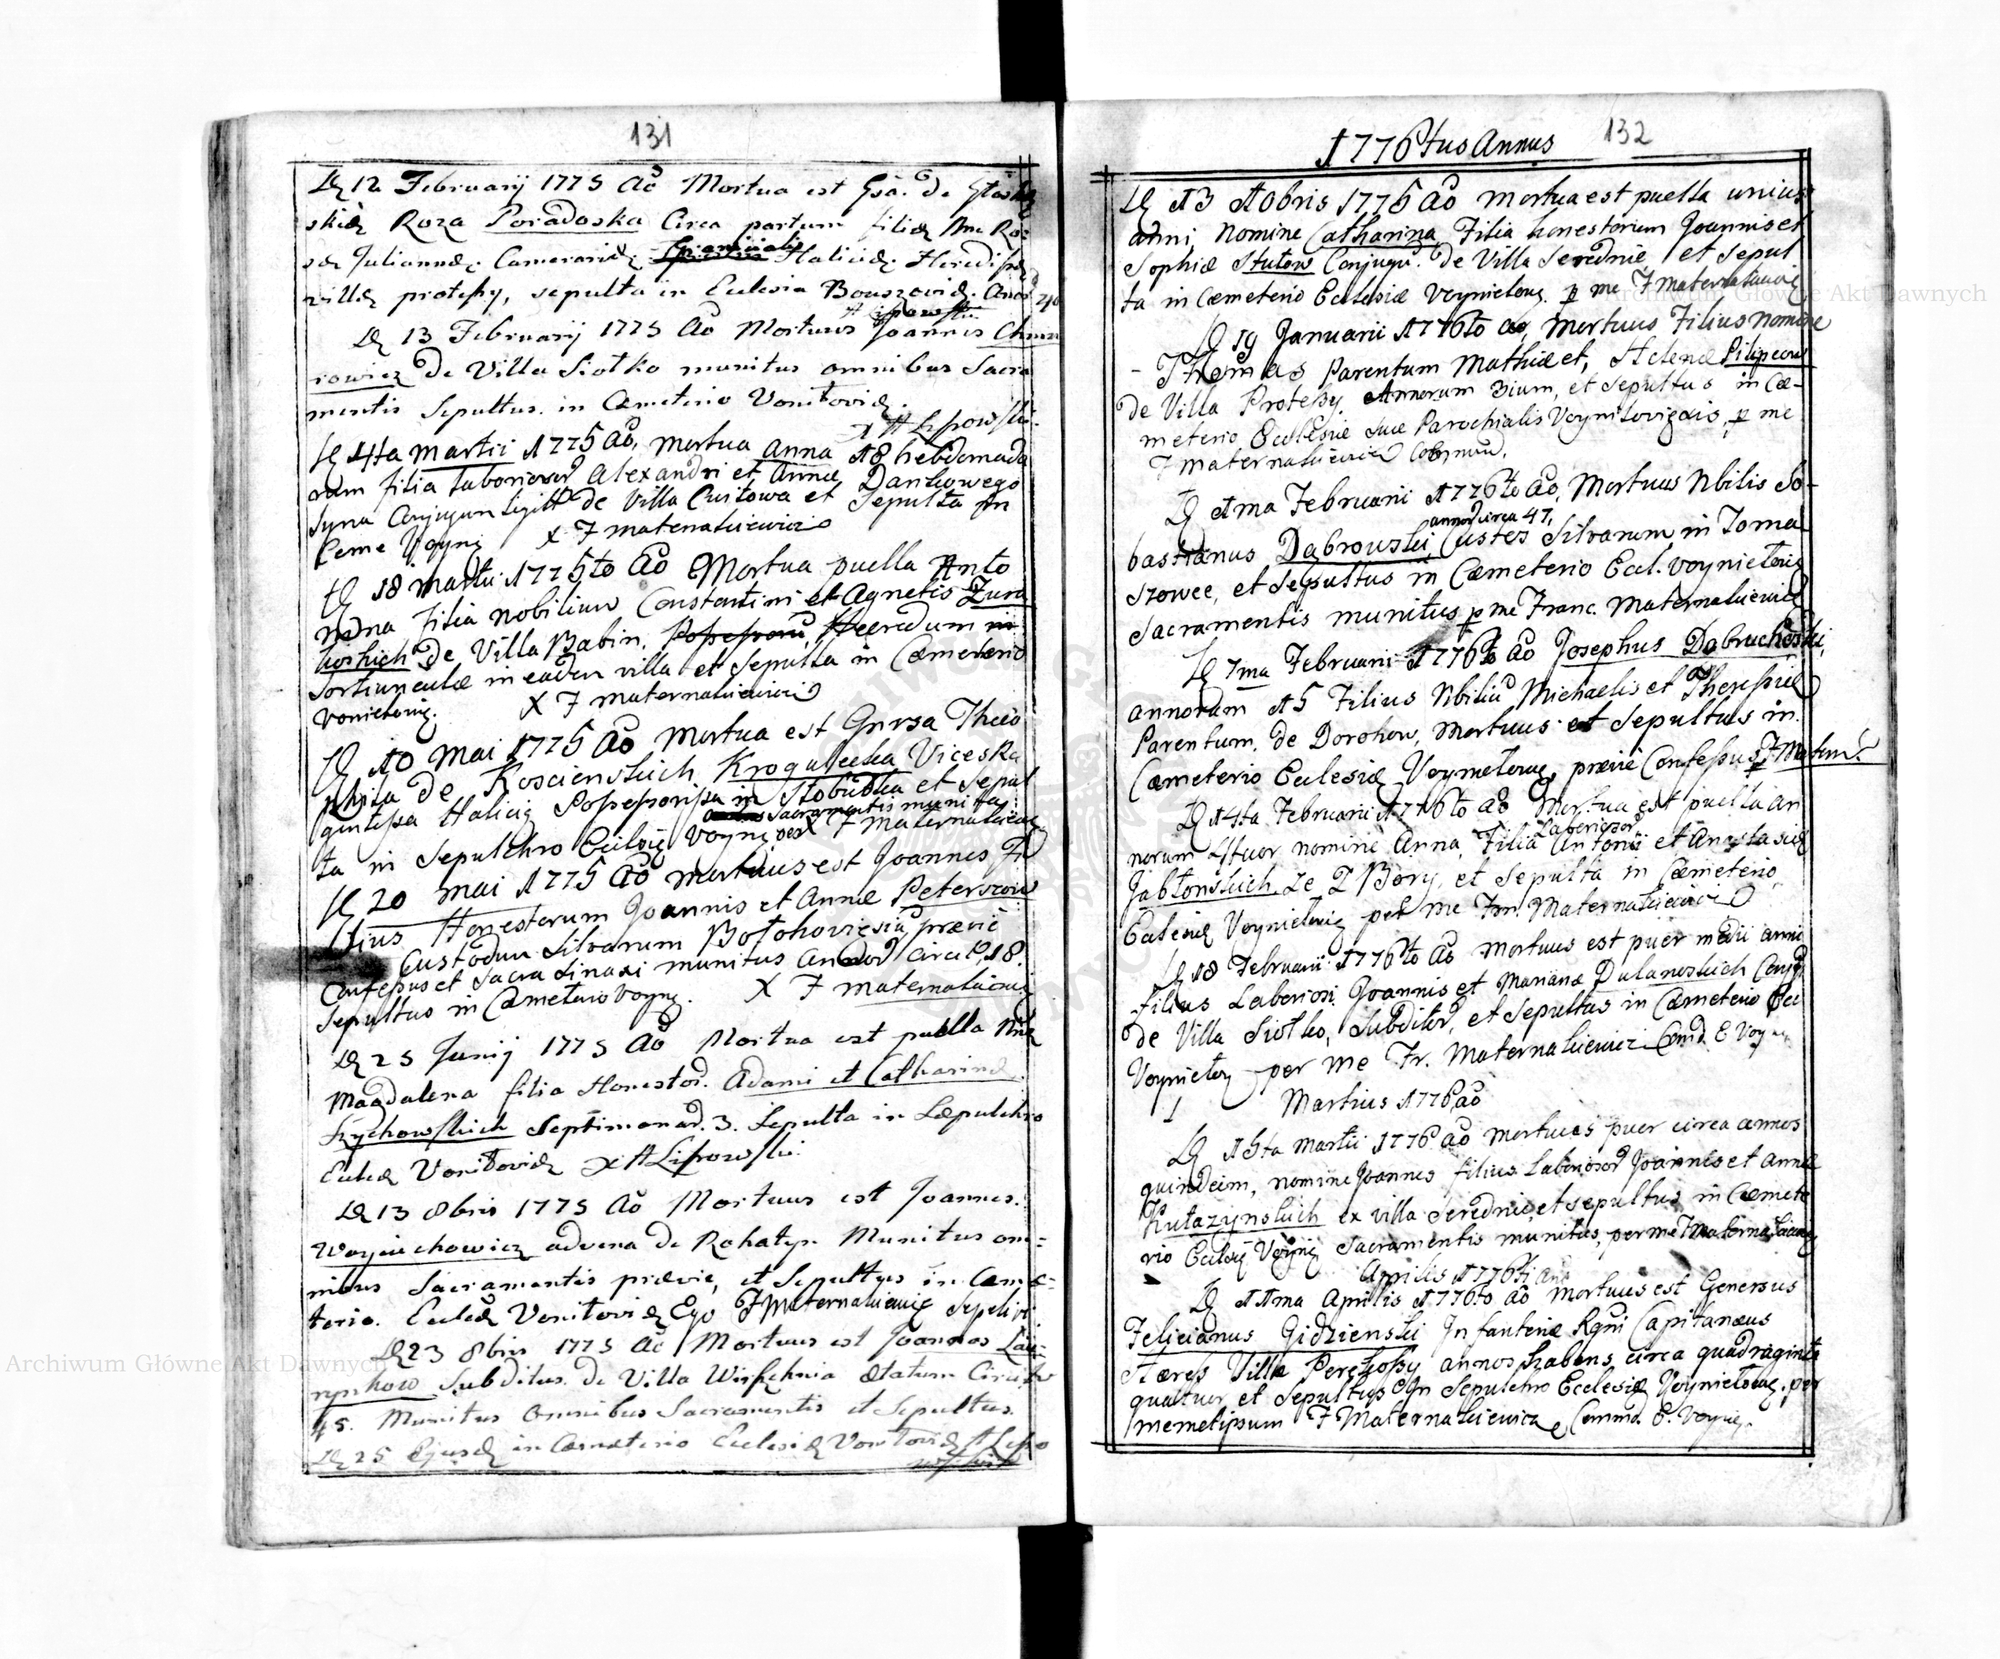 131
Die 12 Februarij 1775 Aõ Mortua est Gsa. de
skie Roza Poradoska Circa partum filiæ Ro
sæ Juliannæ. Camerariæ Haliciæ. Heredissæ
villæ protessy, sepulta in Eclesia Bouszoviæ. Anor. 240
A Lipowski
Die 13 Februarij 1775 Aõ Mortuus Joannes
rowicz de Villa Siolko munitus omnibus Sacra
mentis Sepultus. in Cæmeterio Vonitoviæ.
x A Lipowski.
Die 4ta Martii 1775 Aõ, Mortua Anna 18 hebdomada
rum filia laboriosor Alexandri et Annæ Dankowego
Syna Conjugum de Villa Cwitowa et Sepulta in
Ceme Voyni x F Maternakiewicz
Die 18 Martii 1775to Aõ Mortua puella Anto
nina Filia Nobilium Constantini et Agnetis Zura
koskich de Villa Babin, Possessorũ, Heeredum in
Sortiunculæ in eadem villa et Sepulta in Cæmeterio
Vonietovię. X F Maternakiewicz
Die 10 Mai 1775 Aõ Mortua est Gnrsa Theo
phila de Koscienskich Krogulecka Viceska
gintessa Haliciæ Possessorissa in Stobudka et Sepul
Sacramentis munita
ta in Sepulchro Eclesię Voynię per X F Maternakiewicz
Die 20 Mai 1775 Aõ Mortuus est Joannes Fi
lius Honestorum Joannis et Annæ Peterszow
Custodum Silvarum Bolohoviesiũ prævie
Confessus et Sacra Sinaxi munitus Annor circa 18.
Sepultus in Cæmeterio Voynę. X F Maternakiewicz
Die 25 Junij 1775 Aõ Mortua est puella
Magdalena filia Honestor. Adami et Catharinæ
Krychowskich Septimanar. 3. Sepulta in Sæpulchro
Eclesæ Vonitoviæ x A Lipowski.
Die 13 8bris 1775 Aõ Mortuus est Joannes.
Woyciechowicz advena de Rohatyn Munitus om=
nibus Sacramentis prævie, et Sepultus in Cæme=
terio. Ecclesæ Vonitoviæ Ego F Maternakiewicz Sepelivi.
Die 23 8bris 1775 Aõ Mortuus est Joannes
Subditus de Villa ætatum Circiter
45. Munitus Omnibus Sacramentis et Sepultus.
Die 25 Ejusd in Cæmeterio Ecclesiæ Vonitoviæ A Lipo
wski
1776tus Annus 132
Die 13 10bris 1775 Aõ Mortua est puella unius
anni, Nomine Catharina Filia honestorum Joannis et
Sophiæ Stutow Conjugũ. de Villa Serednie et Sepul
ta in Cæmeterio Ecclesiæ Voynietovę. p me F Maternakiewicz
Die 19 Januarii 1776to Aõ, Mortuus Filius nomine
- Thomas Parentum Mathiæ et, Helenæ Pilipcow
de Villa Protessy. Annorum 3ium, et Sepultus in Cæ-
meterio Ecclesiæ suæ Parochialis Voynitoviensis, p me
F Maternakiewicz Commend.
Die 1ma Februarii 1776to Aõ, Mortuus Nbilis Se-
annor circa 47,
bastianus Dąbrowski, Custos Silvarum, in Toma
szowce, et Sepultus in Cæmeterio Eccl. Voynietovię
Sacramentis munitus p me Franc. Maternakiewicz
Die 7ma Februarii 1776to Aõ Josephus Dobruchowski,
annorum 15 Filius Nbiliũ Michaelis et Theressiæ
Parentum, de Dorohow, Mortuus et Sepultus in
Cæmeterio Ecclesiæ Voynietovię, prævie Confessus, p F Matern.
Die 14ta Februarii 1776to Aõ Mortua est puella an
Laboriosor
norum 4tuor nomine Anna, Filia Antonii et Anastasiæ
Jabłonskich Ze Z Bory, et Sepulta in Cæmeterio
Eclesiæ Voynietovię per me Fran. Maternakiewicz
Die 18 Februarii 1776to Aõ Mortuus est puer medii anni
Filius Laboriosi Joannis et Marianæ Dulanoskich Conjg.
de Villa Siolko, Subditor, et Sepultus in Cæmeterio Eccl
Voynietov per me Fr. Maternakiewicz Comd. E. Voyn
1 Martius 1776 Aõ
Die 15ta Martii 1776 Aõ Mortuus puer circa annos
quindecim, nomine Joannes filius Laboriosor Joannis et Annæ
Kutazynskich ex villa Serednie, et sepultus in Cæmete
rio Ecclesię Voynię Sacramentis munitus, per me F Maternakiewicz
Aprilis 1776ti
Die 11ma Aprilis 1776to Aõ Mortuus est Generosus
Felicianus Gidzienski Infanteriæ Rgni Capitanæus
Hæres Villæ Perehossy annos habens circa quadraginta
quatuor et Sepultus in Sepulchro Ecclesiæ Voynietovię. per
memetipsum F Maternakiewicz Commd. E. Voynię.
Archiwum Główne Akt Dawnych
Archiwum Główne Akt Dawnych